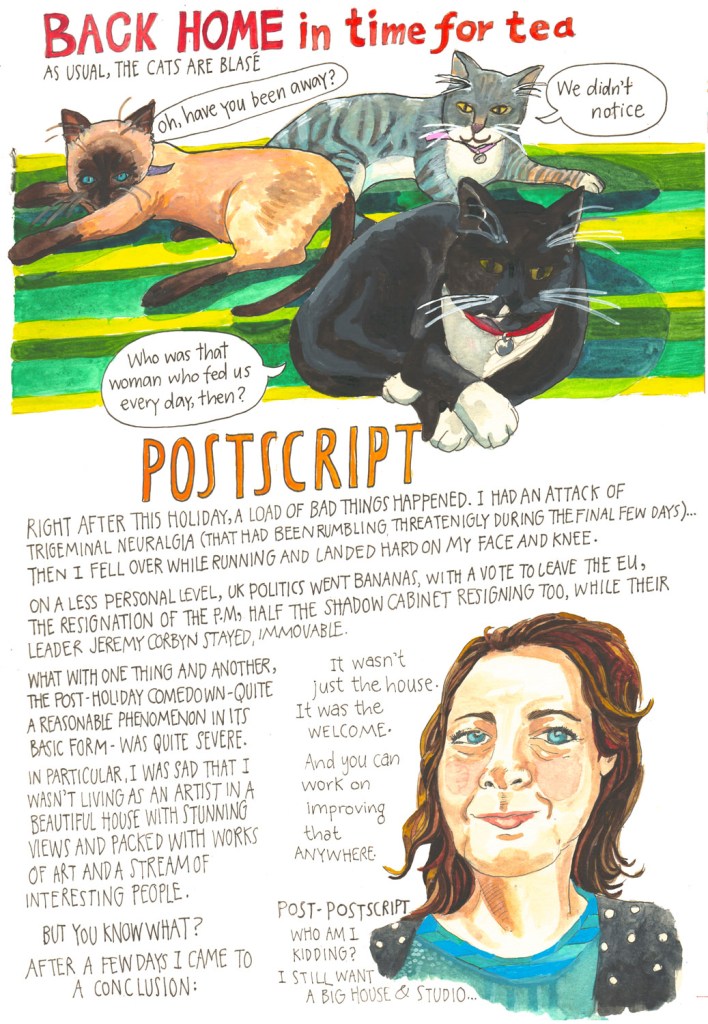 BACK HOME in time for tea
AS USUAL, THE CATS ARE BLASÉ
Oh, have you been away?
We didn't
notice
Who was that
woman who fed us
every day, then?
POSTSCRIPT
RIGHT AFTER THIS HOLIDAY, A LOAD OF BAD THINGS HAPPENED. I HAD AN ATTACK OF
TRIGEMINAL NEURALGIA (THAT HAD BEEN RUMBLING THREATENIGLY DURING THE FINAL FEW DAYS)...
THEN I FELL OVER WHILE RUNNING AND LANDED HARD ON MY FACE AND KNEE.
ON A LESS PERSONAL LEVEL, UK POLITICS WENT BANANAS, WITH A VOTE TO LEAVE THE EU,
THE RESIGNATION OF THE P.M, HALF THE SHADOW CABINET RESIGNING TOO, WHILE THEIR
LEADER JEREMY CORBYN STAYED, IMMOVABLE.
WHAT WITH ONE THING AND ANOTHER,
THE POST-HOLIDAY COMEDOWN-QUITE
A REASONABLE PHENOMENON IN ITS
BASIC FORM - WAS QUITE SEVERE.
IN PARTICULAR, I WAS SAD THAT I
WASN'T LIVING AS AN ARTIST IN A
BEAUTIFUL HOUSE WITH STUNNING
VIEWS AND PACKED WITH WORKS
OF ART AND A STREAM OF
INTERESTING PEOPLE.
BUT YOU KNOW WHAT?
AFTER A FEW DAYS I CAME TO
A CONCLUSION:
It wasn't
just the house.
It was the
WELCOME.
And you can
work on
improving
that
ANYWHERE.
POST-POSTSCRIPT
WHO AM I
KIDDING?
I STILL WANT
A BIG HOUSE & STUDIO...